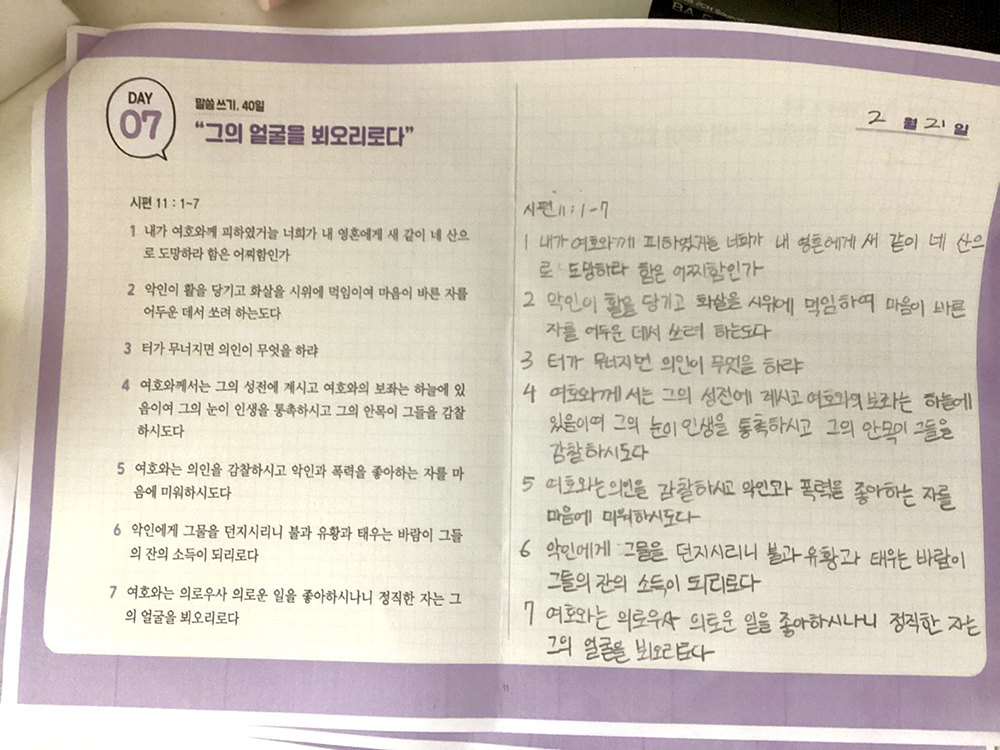 DAY
07
말씀 쓰기, 40일
“그의 얼굴을 뵈오리로다”
시편 11 : 1~7
1 내가 여호와께 피하였거늘 너희가 내 영혼에게 새 같이 네 산으
로 도망하라 함은 어찌함인가
2 악인이 활을 당기고 화살을 시위에 먹임이여 마음이 바른 자를
어두운 데서 쏘려 하는도다
3 터가 무너지면 의인이 무엇을 하랴
4 여호와께서는 그의 성전에 계시고 여호와의 보좌는 하늘에 있
음이여 그의 눈이 인생을 통촉하시고 그의 안목이 그들을 감찰
하시도다
5 여호와는 의인을 감찰하시고 악인과 폭력을 좋아하는 자를 마
음에 미워하시도다
6 악인에게 그물을 던지시리니 불과 유황과 태우는 바람이 그들
의 잔의 소득이 되리로다
7 여호와는 의로우사 의로운 일을 좋아하시나니 정직한 자는 그
의 얼굴을 뵈오리로다
2 월 21 일
시편 11 : 1-7
1 내가 여호와께 피하였거늘 너희가 내 영혼에게 새 같이 네 산으
로 도망하라 함은 어찌함인가
2 악인이 활을 당기고 화살을 시위에 먹임하여 마음이 바른
자를 어두운 데서 쏘려 하는도다
3 터가 무너지면 의인이 무엇을 하랴
4 여호와께서는 그의 성전에 계시고 여호와의 보좌는 하늘에
있음이여 그의 눈이 인생을 통촉하시고 그의 안목이 그들을
감찰하시도다
5 여호와는 의인을 감찰하시고 악인과 폭력을 좋아하는 자를
마음에 미워하시도다
6 악인에게 그물을 던지시리니 불과 유황과 태우는 바람이
그들의 잔의 소득이 되리로다
7 여호와는 의로우사 의로운 일을 좋아하시나니 정직한 자는
그의 얼굴을 뵈오리로다
11